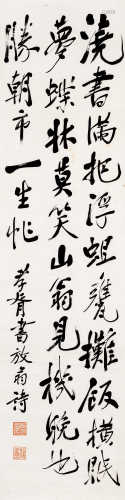 澆書滿挹浮蛆甕攤飯橫眠
夢蝶牀莫笑山翁見機晚也
勝朝市一生忙
孝胥書放翁詩